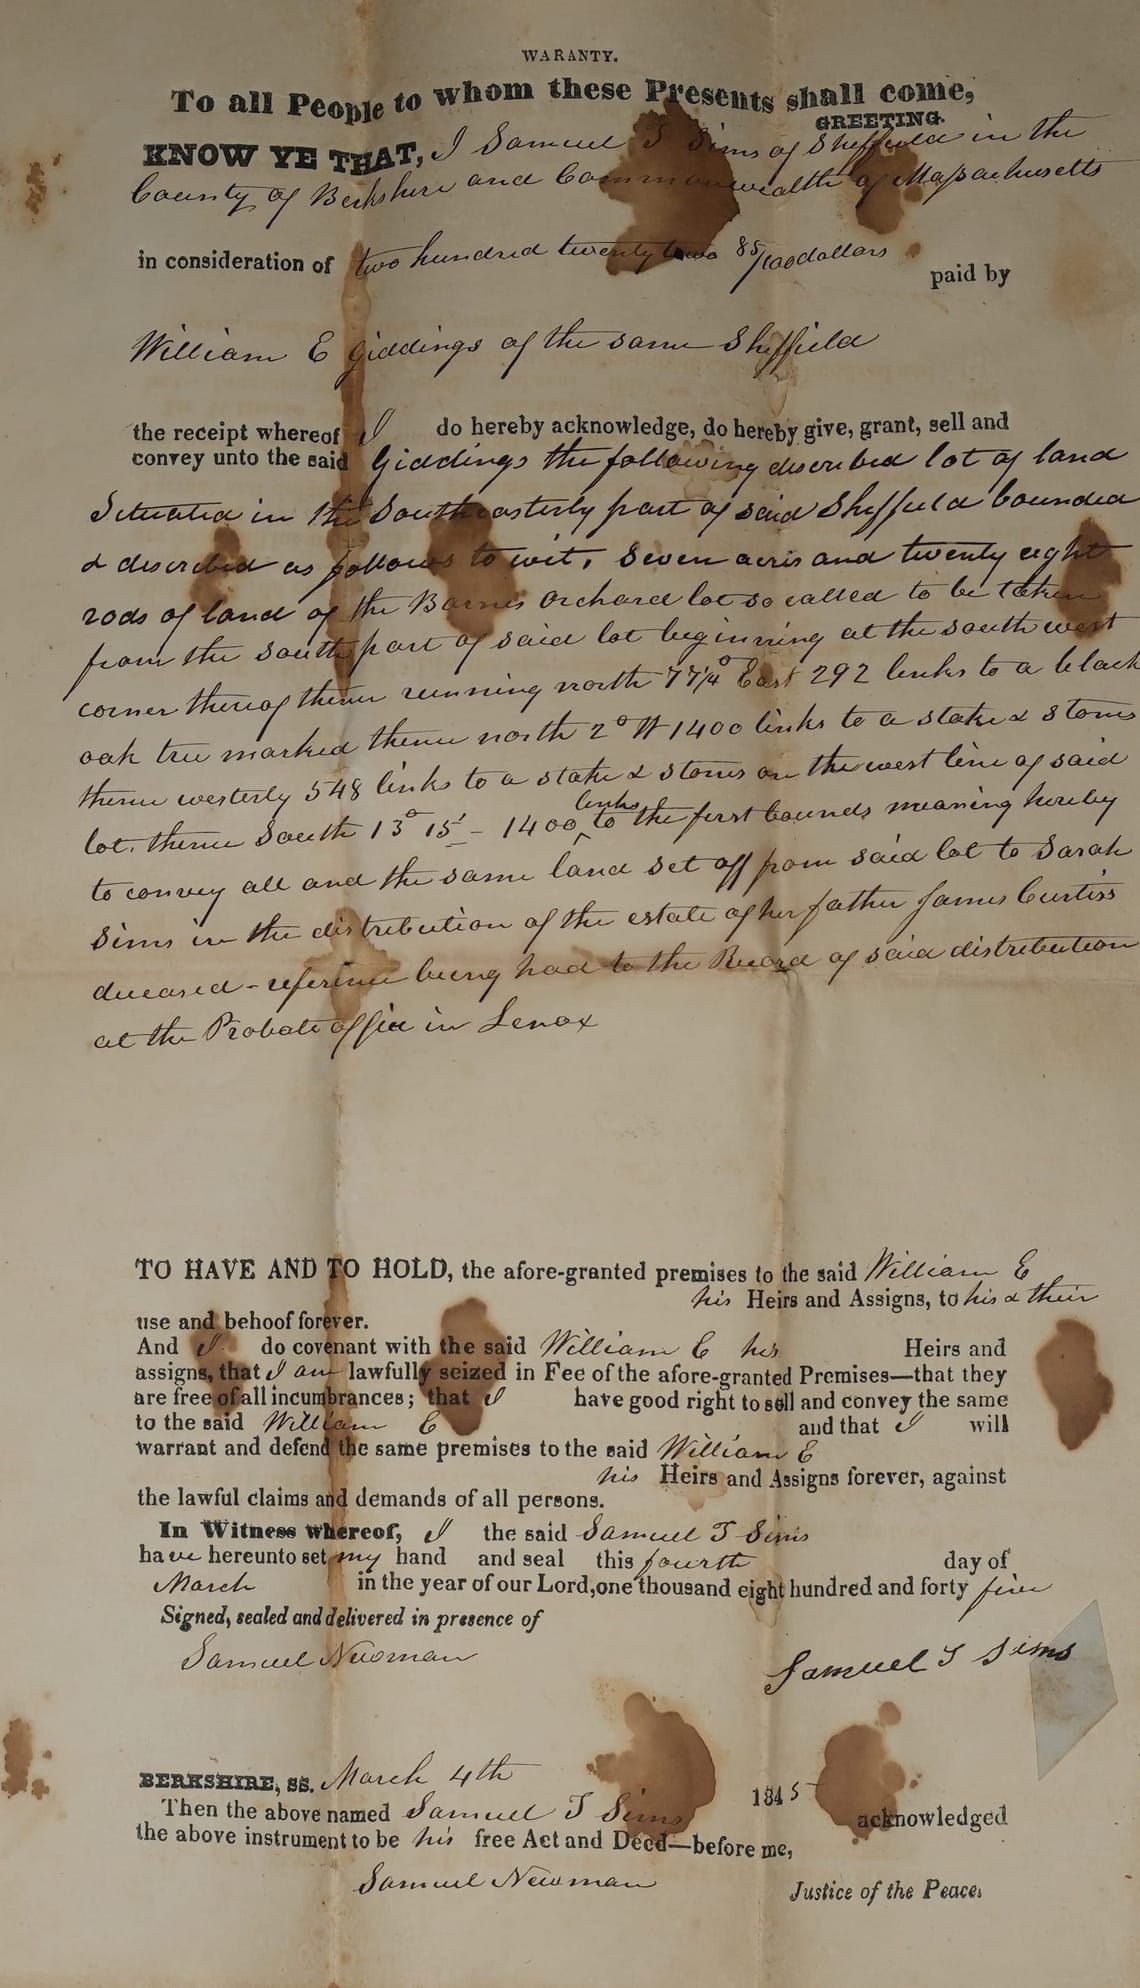 WARANTY.
To all People to whom these Presents shall come,
GREETING.
KNOW YE THAT, I Samuel T Sims of Sheffield in the
County of Berkshire and Commonwealth of Massachusetts
in consideration of two hundred twenty two 85/100 dollars paid by
William E Giddings of the same Sheffield
the receipt whereof I do hereby acknowledge, do hereby give, grant, sell and
convey unto the said Giddings the following described lot of land
Situated in the Southeasterly part of said Sheffield bounded
& described as follows to wit, Seven acres and twenty eight
rods of land of the Barnes Orchard lot so called to be taken
from the south part of said lot beginning at the south west
corner thereof thence running north 77 1/4° East 292 links to a black
oak tree marked thence north 2° W 1400 links to a stake & stones
thence westerly 548 links to a stake & stones on the west line of said
lot. thence South 13° 15' - 1400 links to the first bounds meaning hereby
to convey all and the same land set off from said lot to Sarah
Sims in the distribution of the estate of her father James Curtiss
deceased - reference being had to the Record of said distribution
at the Probate office in Lenox
TO HAVE AND TO HOLD, the afore-granted premises to the said William E
his Heirs and Assigns, to his & their
use and behoof forever.
And I do covenant with the said William E his Heirs and
assigns, that I am lawfully seized in Fee of the afore-granted Premises—that they
are free of all incumbrances; that I have good right to sell and convey the same
to the said William E and that I will
warrant and defend the same premises to the said William E
his Heirs and Assigns forever, against
the lawful claims and demands of all persons.
In Witness whereof, I the said Samuel T Sims
have hereunto set my hand and seal this fourth day of
March in the year of our Lord, one thousand eight hundred and forty five
Signed, sealed and delivered in presence of
Samuel Newman
Samuel T Sims
BERKSHIRE, SS. March 4th 1845
Then the above named Samuel T Sims acknowledged
the above instrument to be his free Act and Deed—before me,
Samuel Newman
Justice of the Peace.